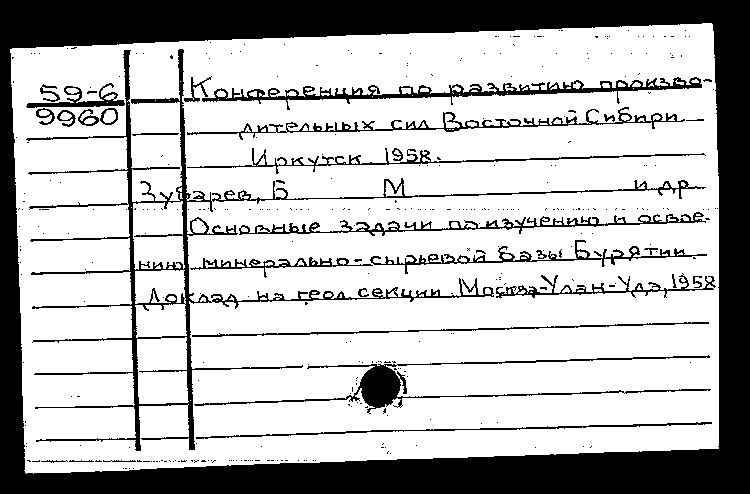 59-6 Конференция по развитию произво-
9960 дительных сил Восточной Сибири
Иркутск 1958.
Зубарев, Б М и др
Основные задачи по изучению и освое-
нию минерально-сырьевой базы Бурятии.
Доклад на геол секции. Москва-Улан-Удэ, 1958